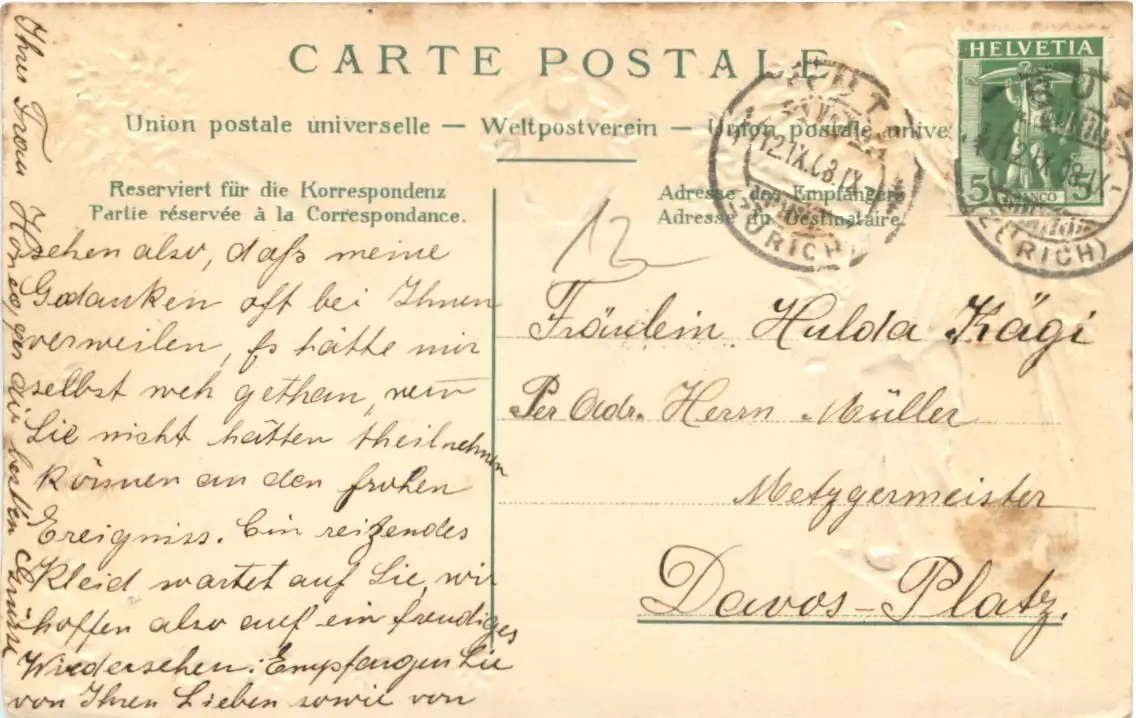 CARTE POSTALE
Union postale universelle — Weltpostverein — Union postale unive
Reserviert für die Korrespondenz
Partie réservée à la Correspondance.
Adresse des Empfängers
Adresse du Destinataire
HELVETIA
5 FRANCO 5
12.IX.08.IX
(ZÜRICH)
12.IX.08.IX
(ZÜRICH)
12
sehen also, daß meine
Gedanken oft bei Ihnen
verweilen, Es hätte mir
selbst weh gethan, wenn
Sie nicht hätten theilnehmen
können an den frohen
Ereigniss. Ein reizendes
Kleid wartet auf Sie, wir
hoffen also auf ein freudiges
Wiedersehen. Empfangen Sie
von Ihren Lieben sowie von
Ihrer Frau die besten Grüsse
Fräulein Hulda Kägi
Per Adr. Herrn Müller
Metzgermeister
Davos-Platz.